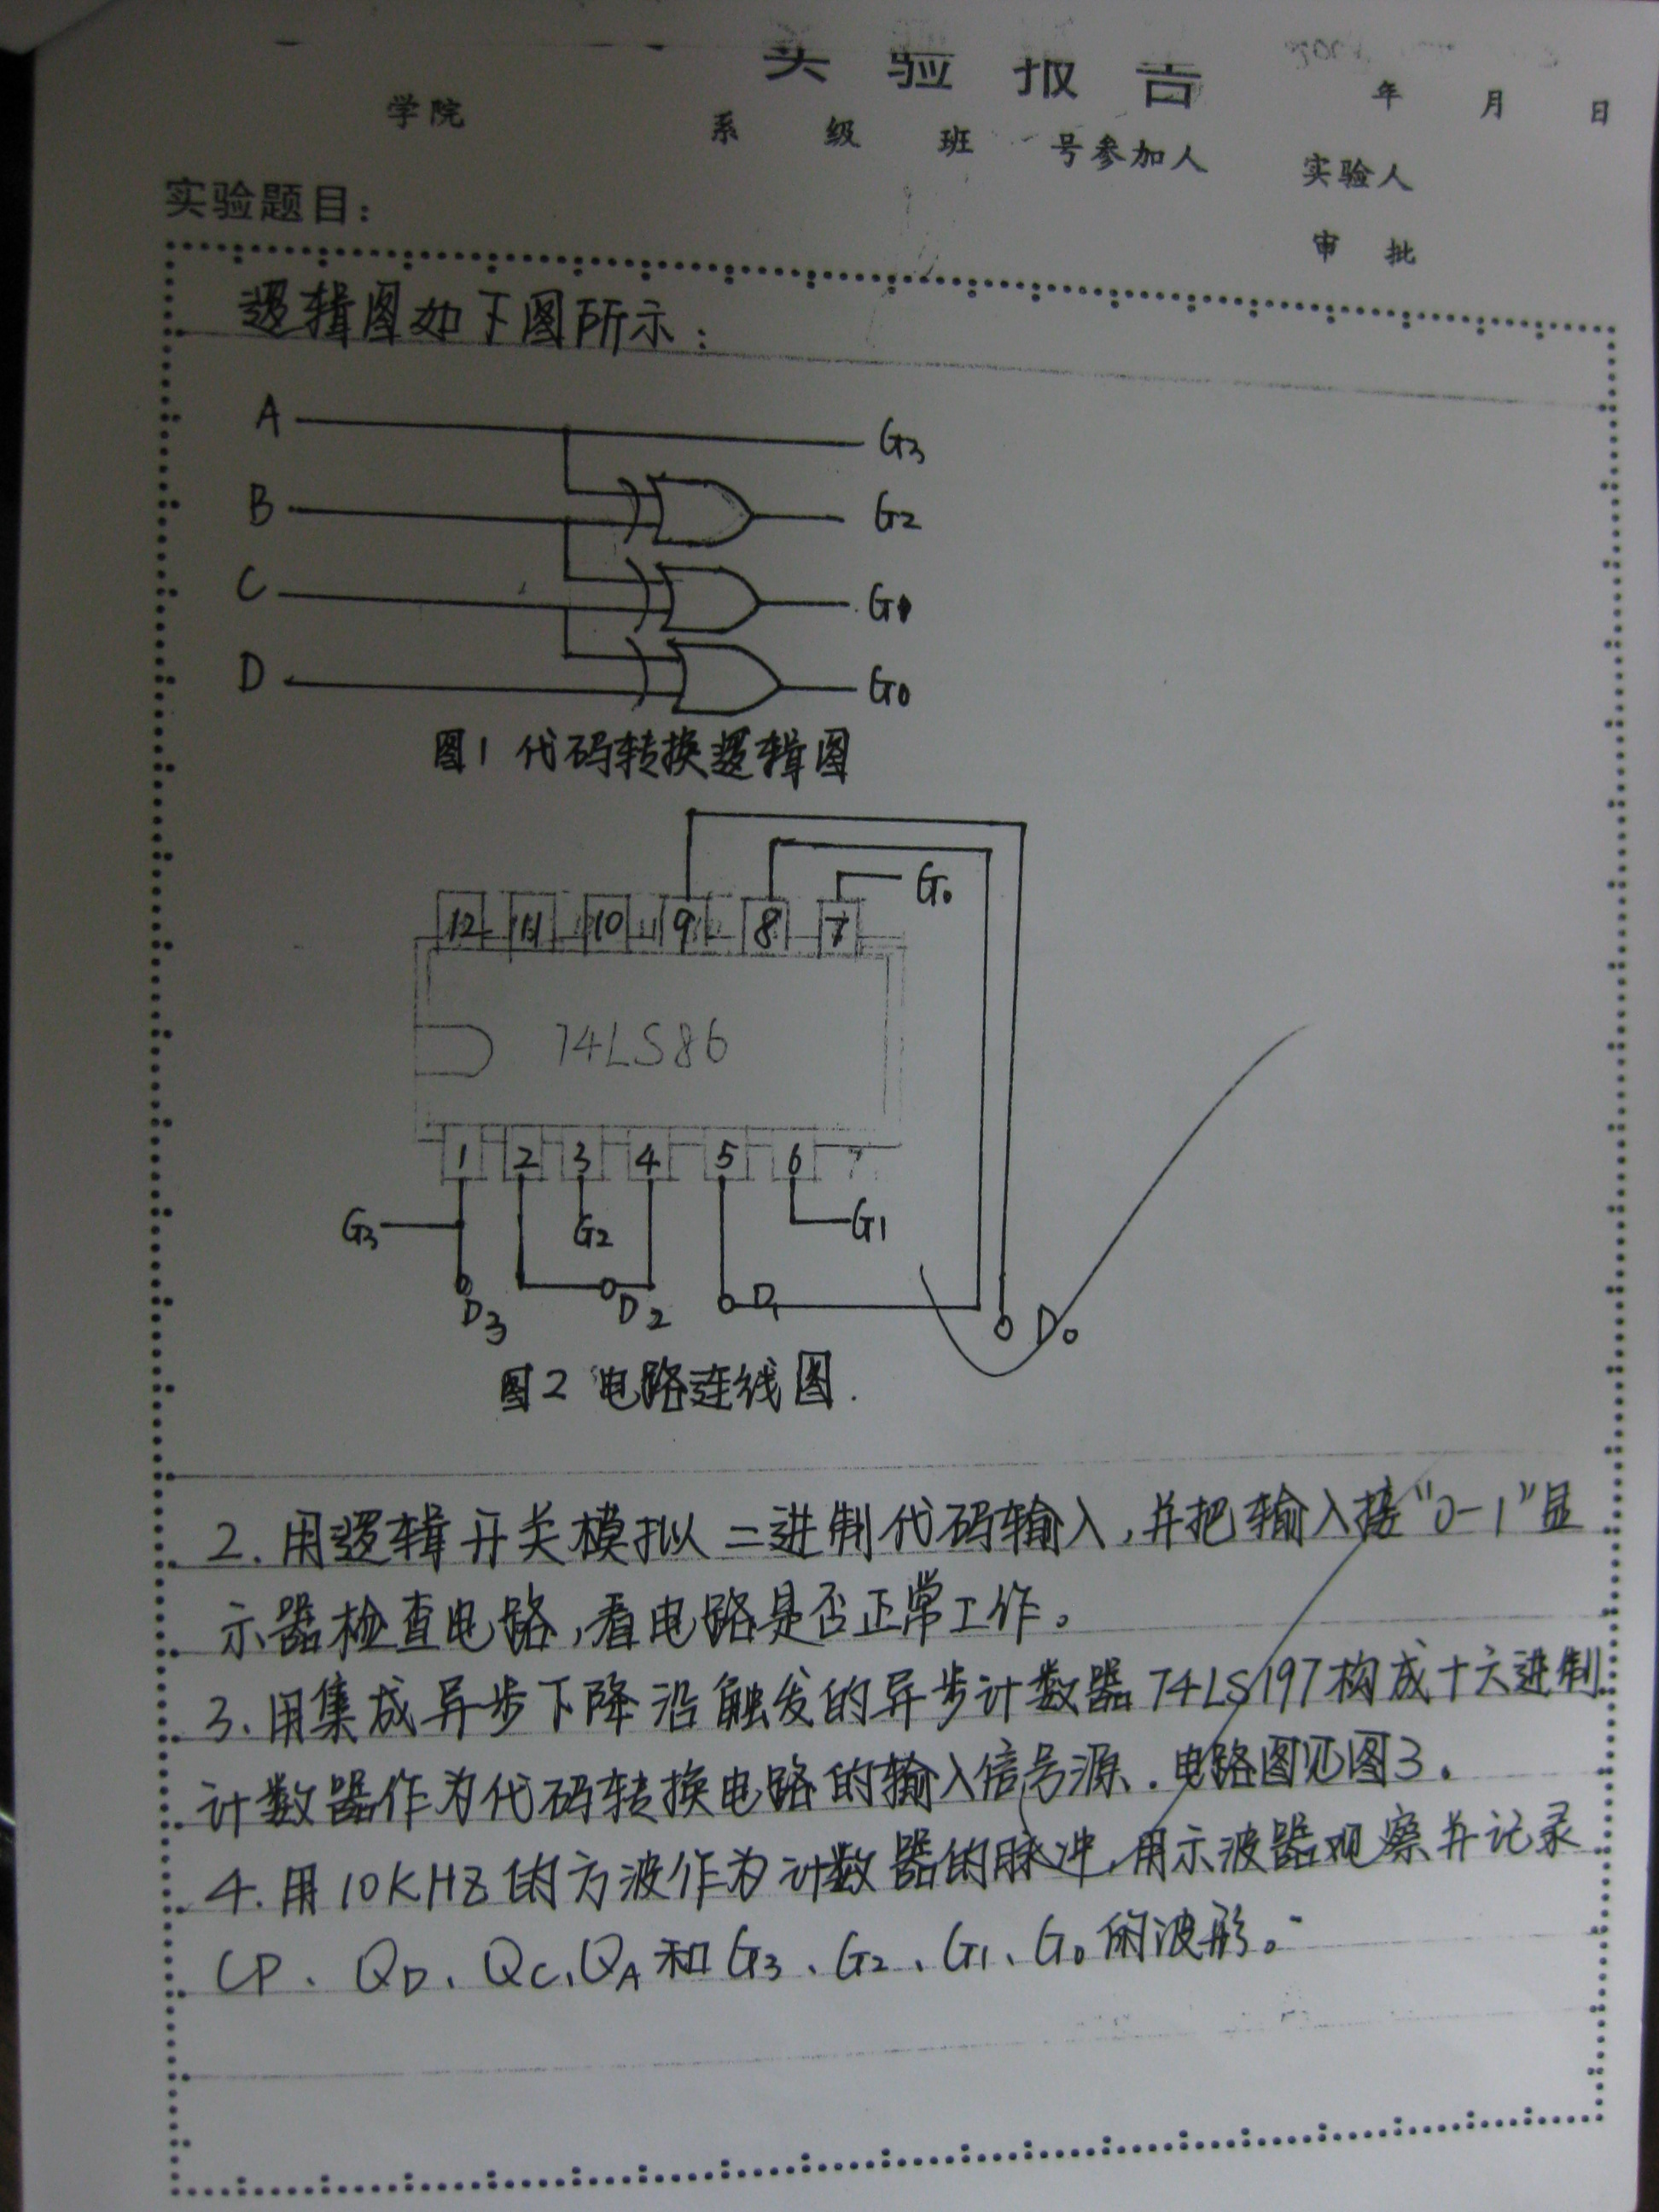 实验报告
年 月 日
学院 系 级 班 号参加人 实验人
实验题目：
审 批
逻辑图如下图所示：
A G3
B G2
C G1
D G0
图1 代码转换逻辑图
G0
12 11 10 9 8 7
74LS86
1 2 3 4 5 6 7
G3 G2 G1
D3 D2 D1 D0
图2 电路连线图.
2. 用逻辑开关模拟二进制代码输入,并把输入接“0-1”显
示器检查电路,看电路是否正常工作。
3. 用集成异步下降沿触发的异步计数器74LS197构成十六进制
计数器作为代码转换电路的输入信号源.电路图见图3。
4. 用10KHZ的方波作为计数器的脉冲,用示波器观察并记录
CP、QD、QC、QA和G3、G2、G1、G0的波形。